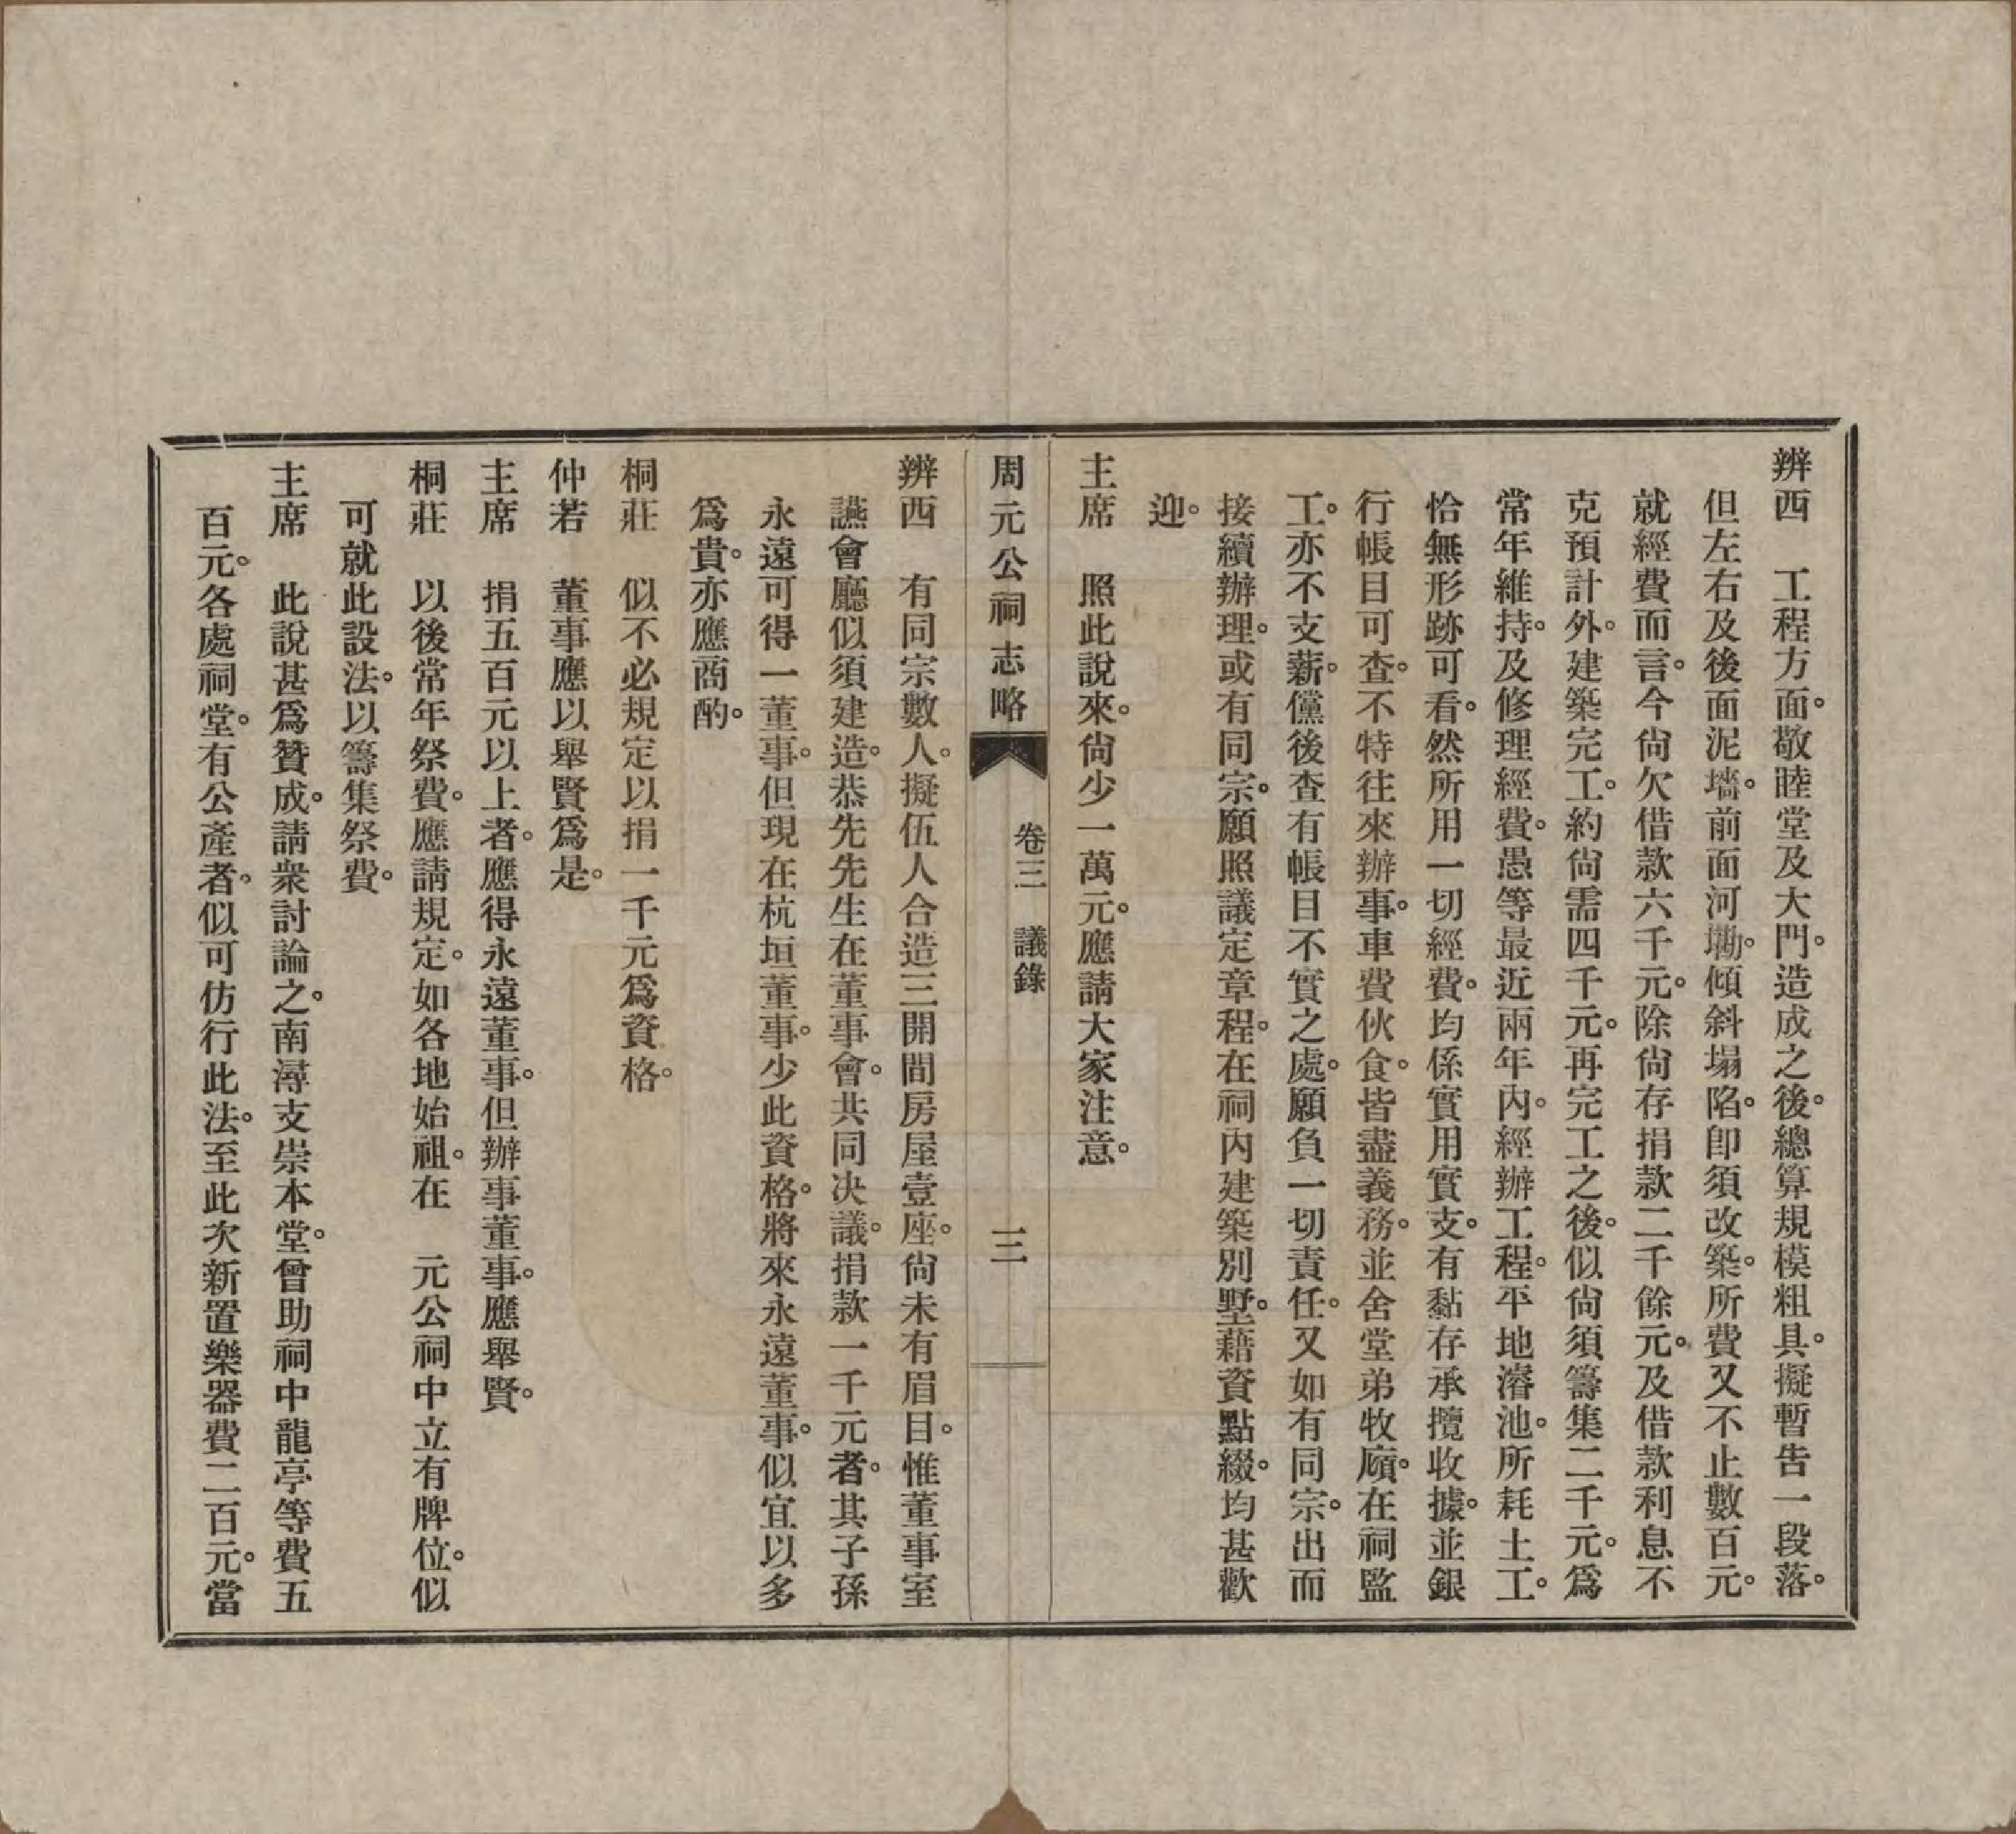 辨西　工程方面。敬睦堂及大門。造成之後。總算規模粗具。擬暫告一段落。
但左右及後面泥墻。前面河磡。傾斜塌陷。卽須改築。所費又不止數百元。
就經費而言。今尙欠借款六千元。除尙存捐款二千餘元。及借款利息不
克預計外。建築完工。約尙需四千元。再完工之後。似尙須籌集二千元。爲
常年維持。及修理經費。愚等最近兩年內。經辦工程。平地濬池。所耗土工。
恰無形跡可看。然所用一切經費。均係實用實支。有黏存承攬收據。並銀
行帳目可查。不特往來辦事。車費伙食。皆盡義務。並舍堂弟牧廎。在祠監
工。亦不支薪。儻後查有帳目不實之處。願負一切責任。又如有同宗。出而
接續辦理。或有同宗。願照議定章程。在祠內建築別墅。藉資點綴。均甚歡
迎。
主席　照此說來。尙少一萬元。應請大家注意。
周元公祠志略　卷三　議錄　三
辨西　有同宗數人。擬伍人合造三開間房屋壹座。尙未有眉目。惟董事室
讌會廳似須建造。恭先先生在董事會。共同決議。捐款一千元者。其子孫
永遠可得一董事。但現在杭垣董事。少此資格。將來永遠董事。似宜以多
爲貴。亦應商酌。
桐莊　似不必規定以捐一千元爲資格。
仲若　董事應以舉賢爲是。
主席　捐五百元以上者。應得永遠董事。但辦事董事。應舉賢。
桐莊　以後常年祭費。應請規定。如各地始祖。在　元公祠中立有牌位。似
可就此設法。以籌集祭費。
主席　此說甚爲贊成。請衆討論之。南潯支崇本堂。曾助祠中龍亭等費五
百元。各處祠堂。有公產者。似可仿行此法。至此次新置樂器費二百元。當